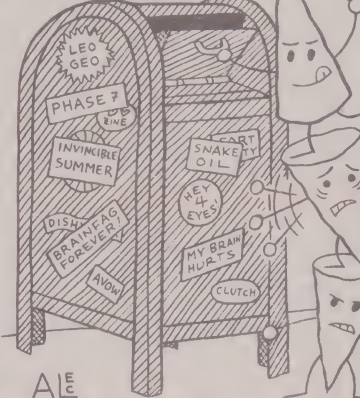 LEO
GEO
PHASE 7
ZINE
INVINCIBLE
SUMMER
DISH
BRAINFAG
FOREVER!
AVOW
ART
TY
SNAKE
OIL
HEY
4
EYES!
MY BRAIN
HURTS
CLUTCH
ALEC